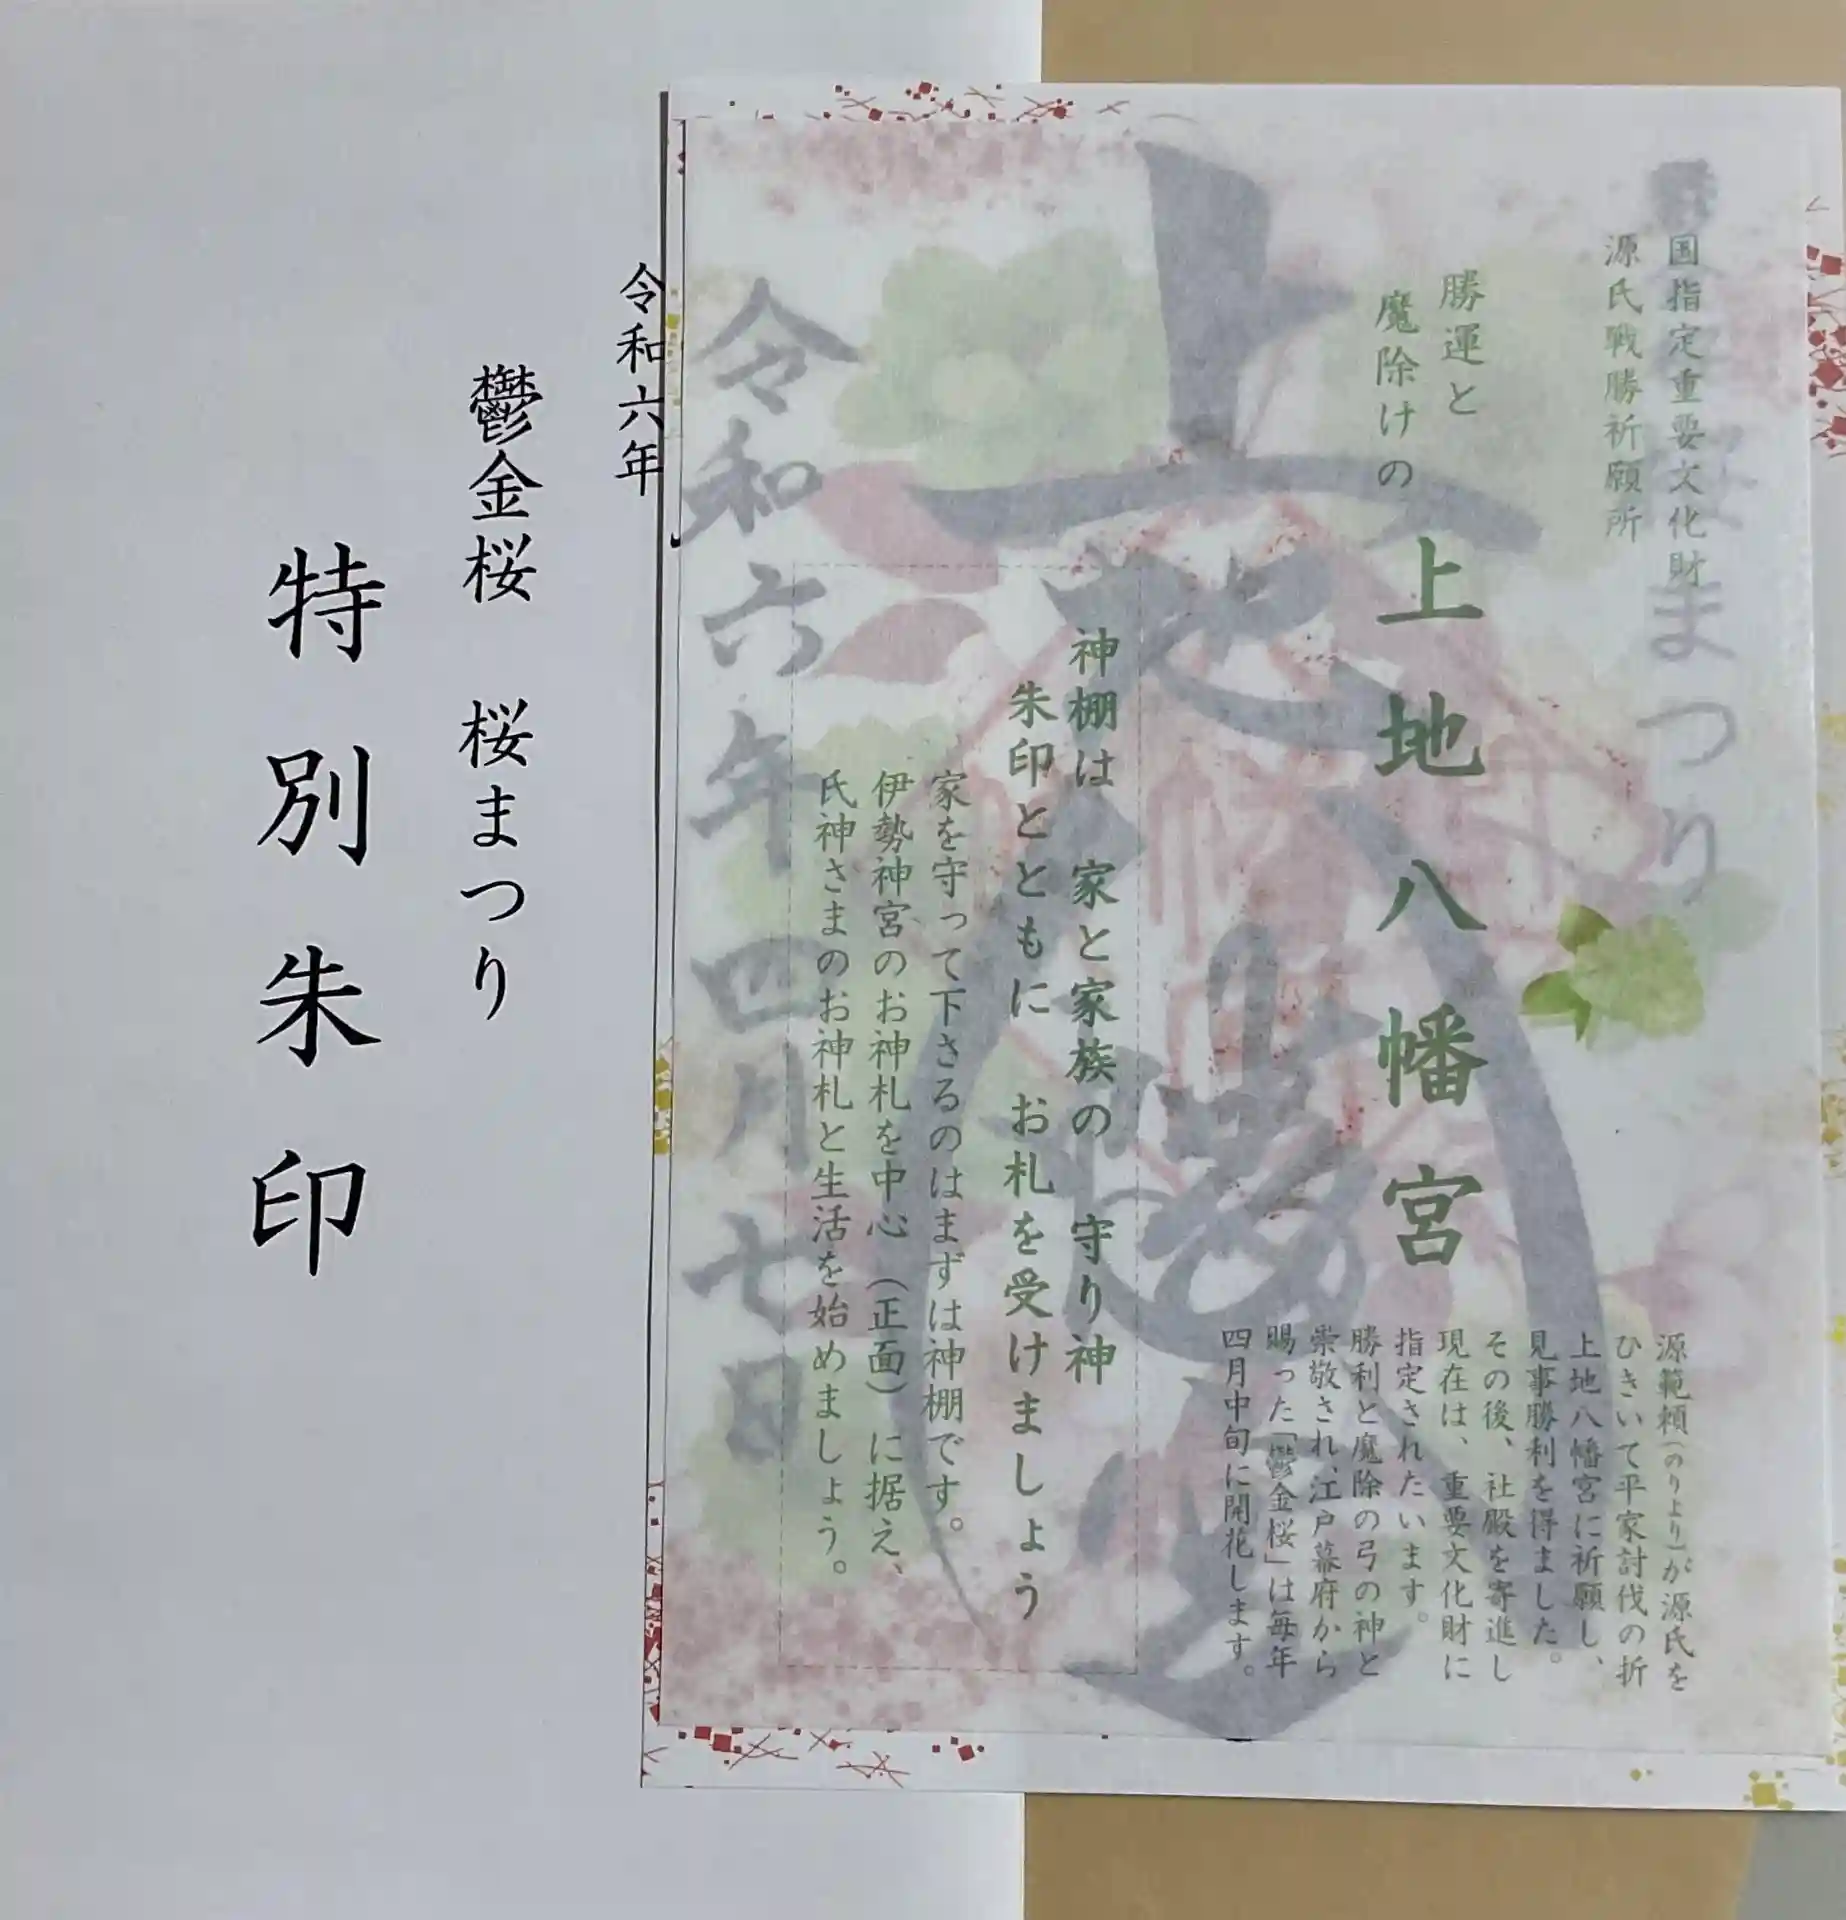 国指定重要文化財
源氏戦勝祈願所
勝運と
魔除けの
上地八幡宮
源範頼(のりより)が源氏を
ひきいて平家討伐の折
上地八幡宮に祈願し、
見事勝利を得ました。
その後、社殿を寄進し
現在は、重要文化財に
指定されたいます。
勝利と魔除の弓の神と
崇敬され、江戸幕府から
賜った「鬱金桜」は毎年
四月中旬に開花します。
神棚は 家と家族の 守り神
朱印とともに お札を受けましょう
家を守って下さるのはまずは神棚です。
伊勢神宮のお神札を中心(正面)に据え、
氏神さまのお神札と生活を始めましょう。
まつり
令和六年四月七日
令和六年
鬱金桜 桜まつり
特別朱印